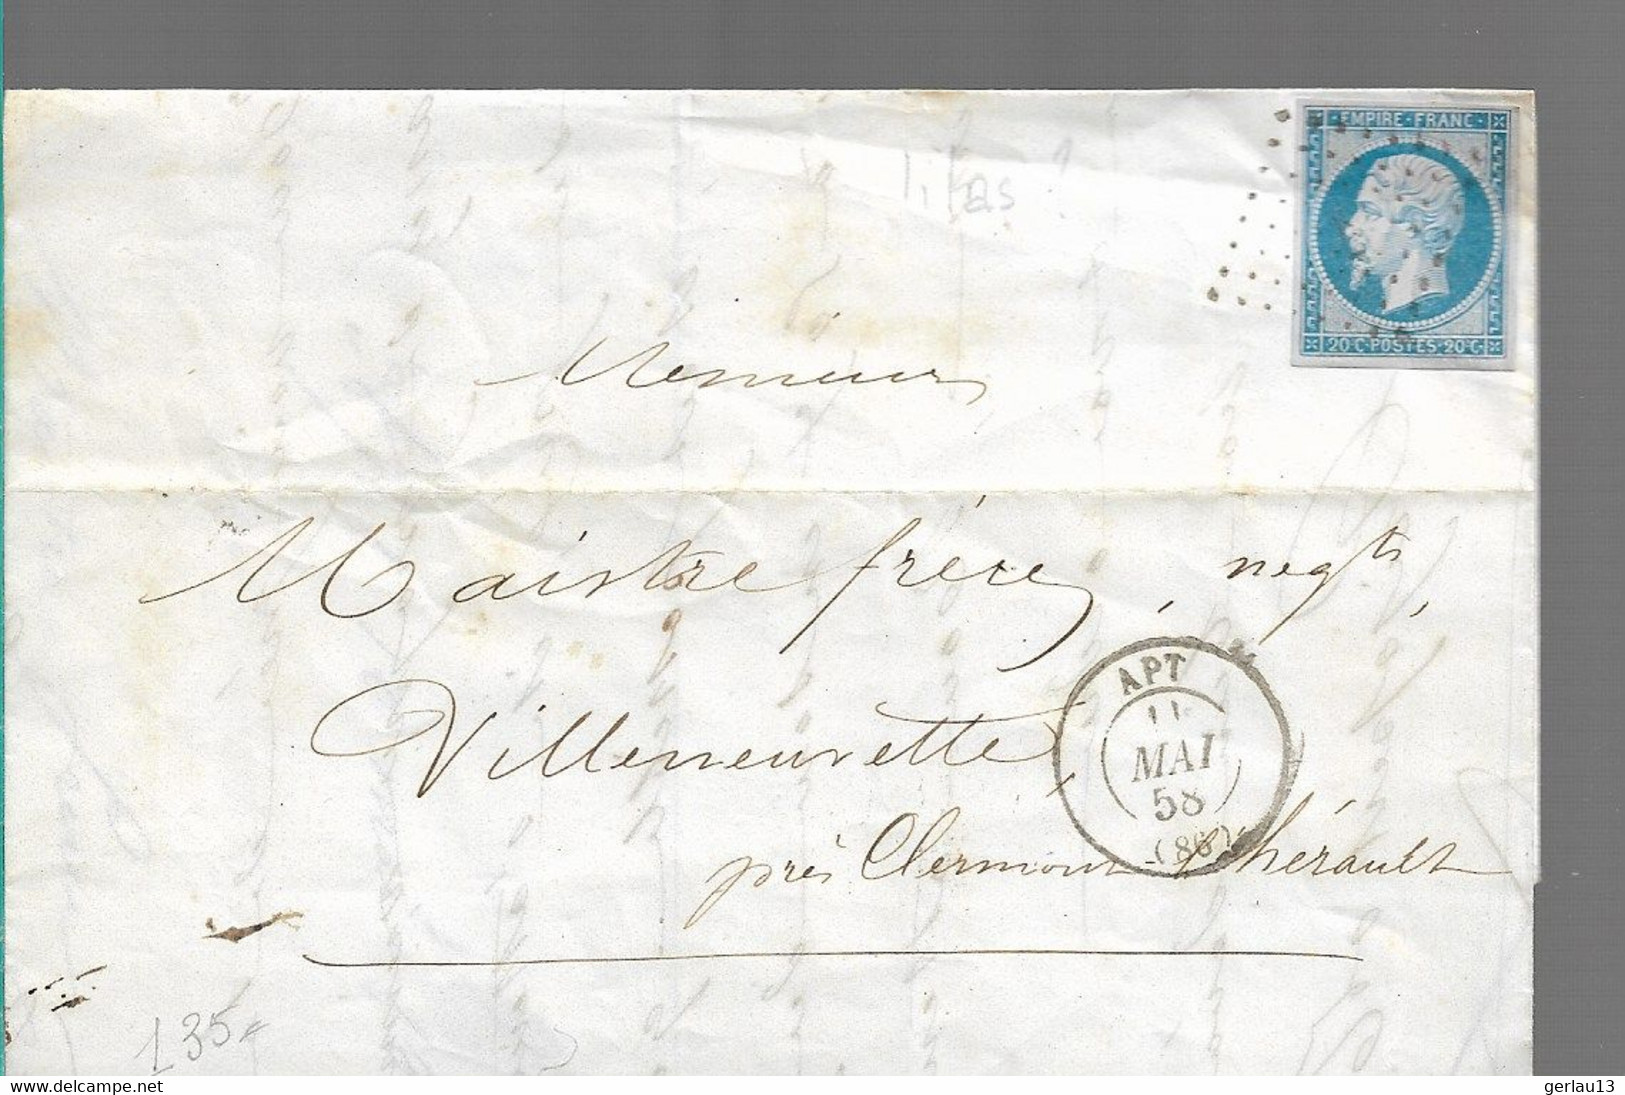 EMPIRE · FRANC ·
20·C·POSTES·20·C·
lilas ?
Messieurs
Maistre frères, negts,
Villeneuvette,
près Clermont l'hérault
APT
11
MAI
58
(86)
135
www.delcampe.net
gerlau13